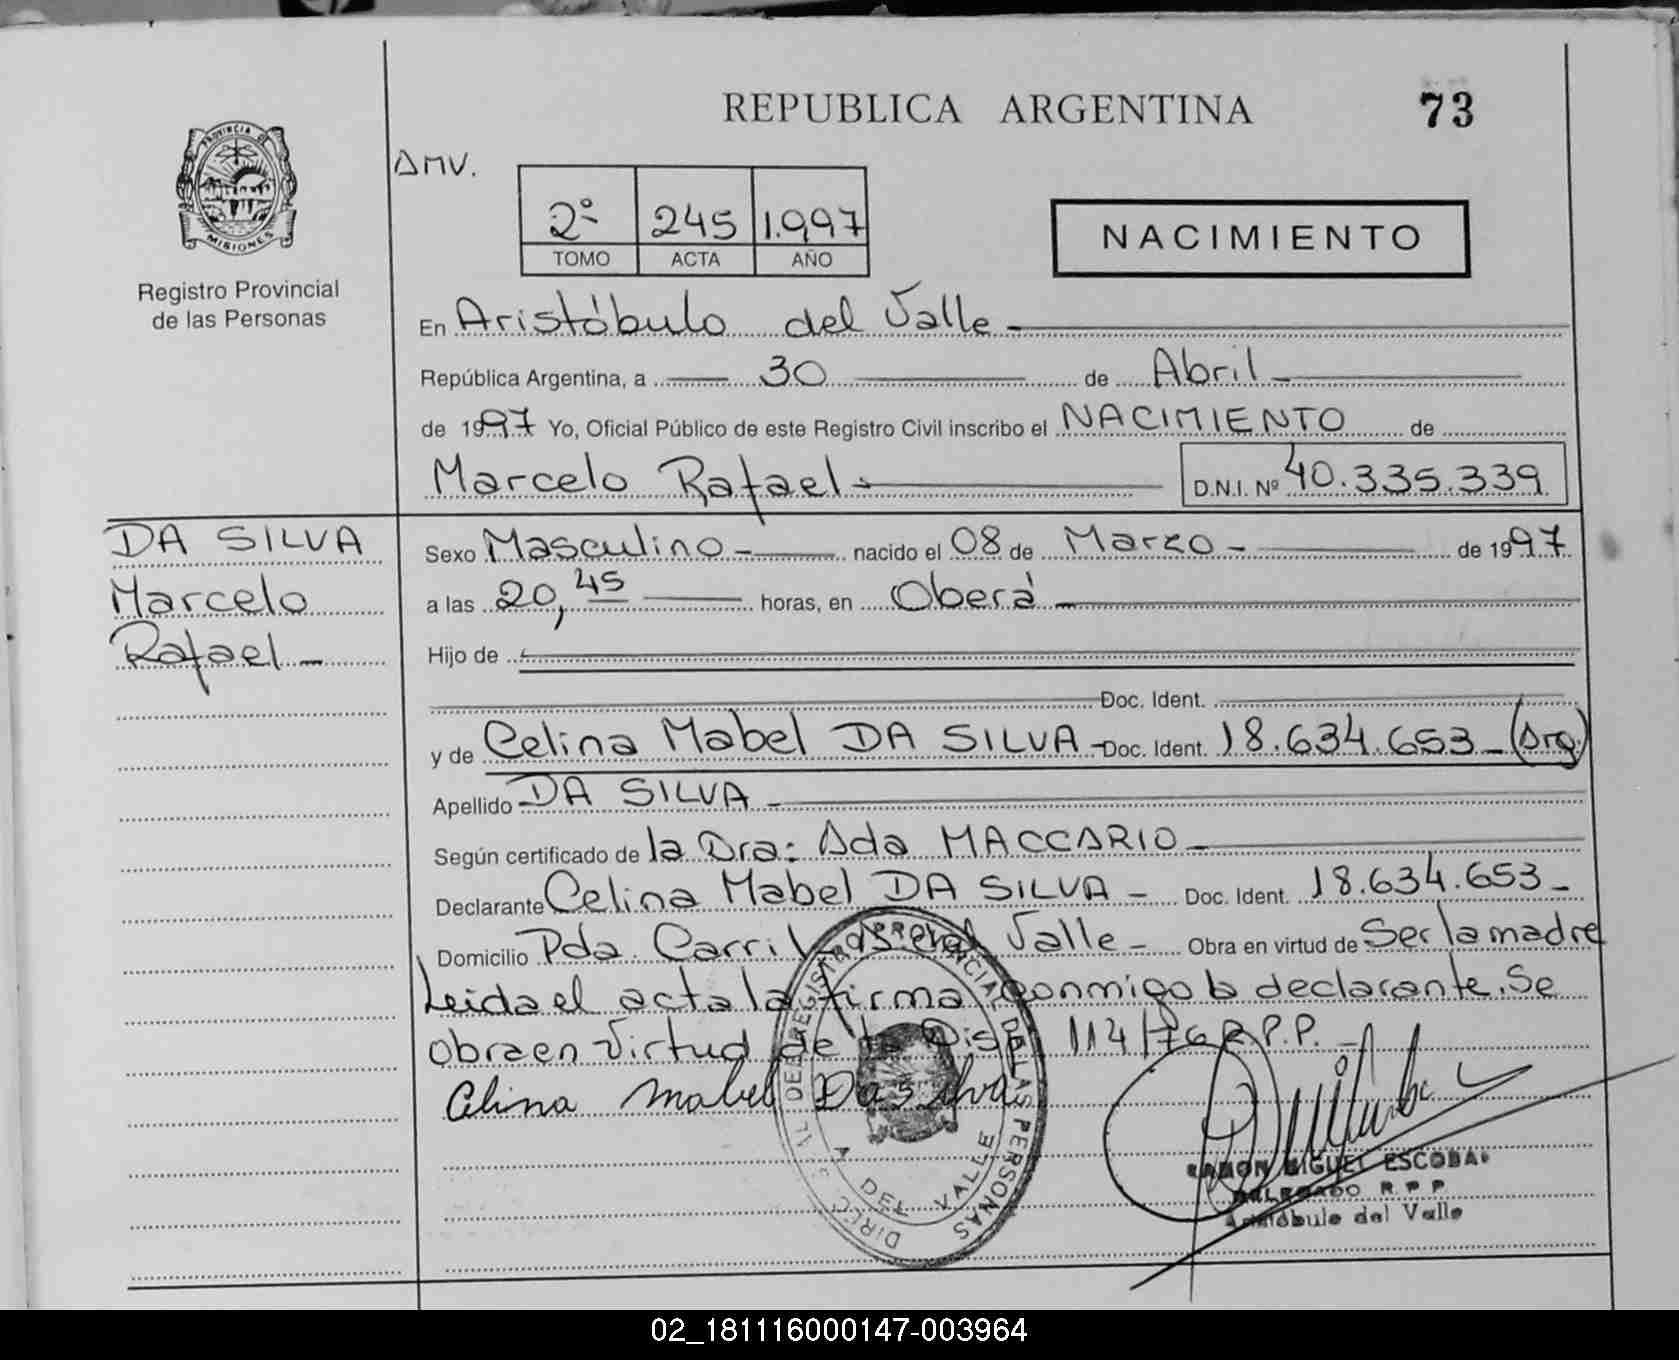 REPUBLICA ARGENTINA
73
PROVINCIA DE
MISIONES
Registro Provincial
de las Personas
AMV.
2º 245 1.997
TOMO ACTA AÑO
NACIMIENTO
En Aristóbulo del Valle
República Argentina, a 30 de Abril
de 1997 Yo, Oficial Público de este Registro Civil inscribo el NACIMIENTO de
Marcelo Rafael D.N.I. Nº 40.335.339
DA SILVA
Marcelo
Rafael
Sexo Masculino nacido el 08 de Marzo de 1997
a las 20,45 horas, en Oberá
Hijo de
Doc. Ident.
y de Celina Mabel DA SILVA Doc. Ident. 18.634.653 (Arg.)
Apellido DA SILVA
Según certificado de la Dra: Ada MACCARIO
Declarante Celina Mabel DA SILVA Doc. Ident. 18.634.653
Domicilio Pda. Carril A. del Valle Obra en virtud de Ser la madre
Leida el acta la firma conmigo la declarante. Se
obra en Virtud de la Disp. 114/76 R.P.P.
Celina Mabel Da Silva
DIREC. GRAL DEL REGISTRO PROVINCIAL DE LAS PERSONAS
A DEL VALLE
RAMON MIGUEL ESCOBAR
DELEGADO R.P.P.
Aristóbulo del Valle
02_181116000147-003964